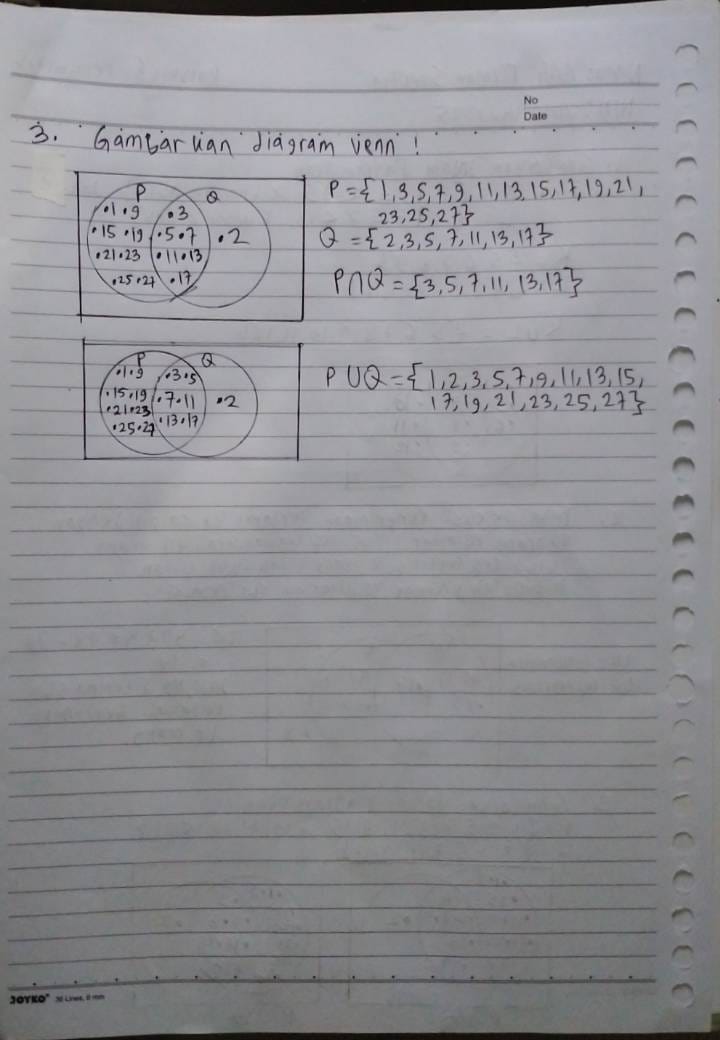 No
Date
3. Gambarkan diagram venn !
P Q
.1 .9 .3
.15 .19 .5 .7 .2
.21 .23 .11 .13
.25 .27 .17
P = {1,3,5,7,9,11,13,15,17,19,21,
23,25,27}
Q = {2,3,5,7,11,13,17}
P∩Q = {3,5,7,11,13,17}
P Q
.1 .9 .3 .5
.15 .19 .7 .11 .2
.21 .23 .13 .17
.25 .27
P∪Q = {1,2,3,5,7,9,11,13,15,
17,19,21,23,25,27}
JOYKO 36 Lines, 8 mm